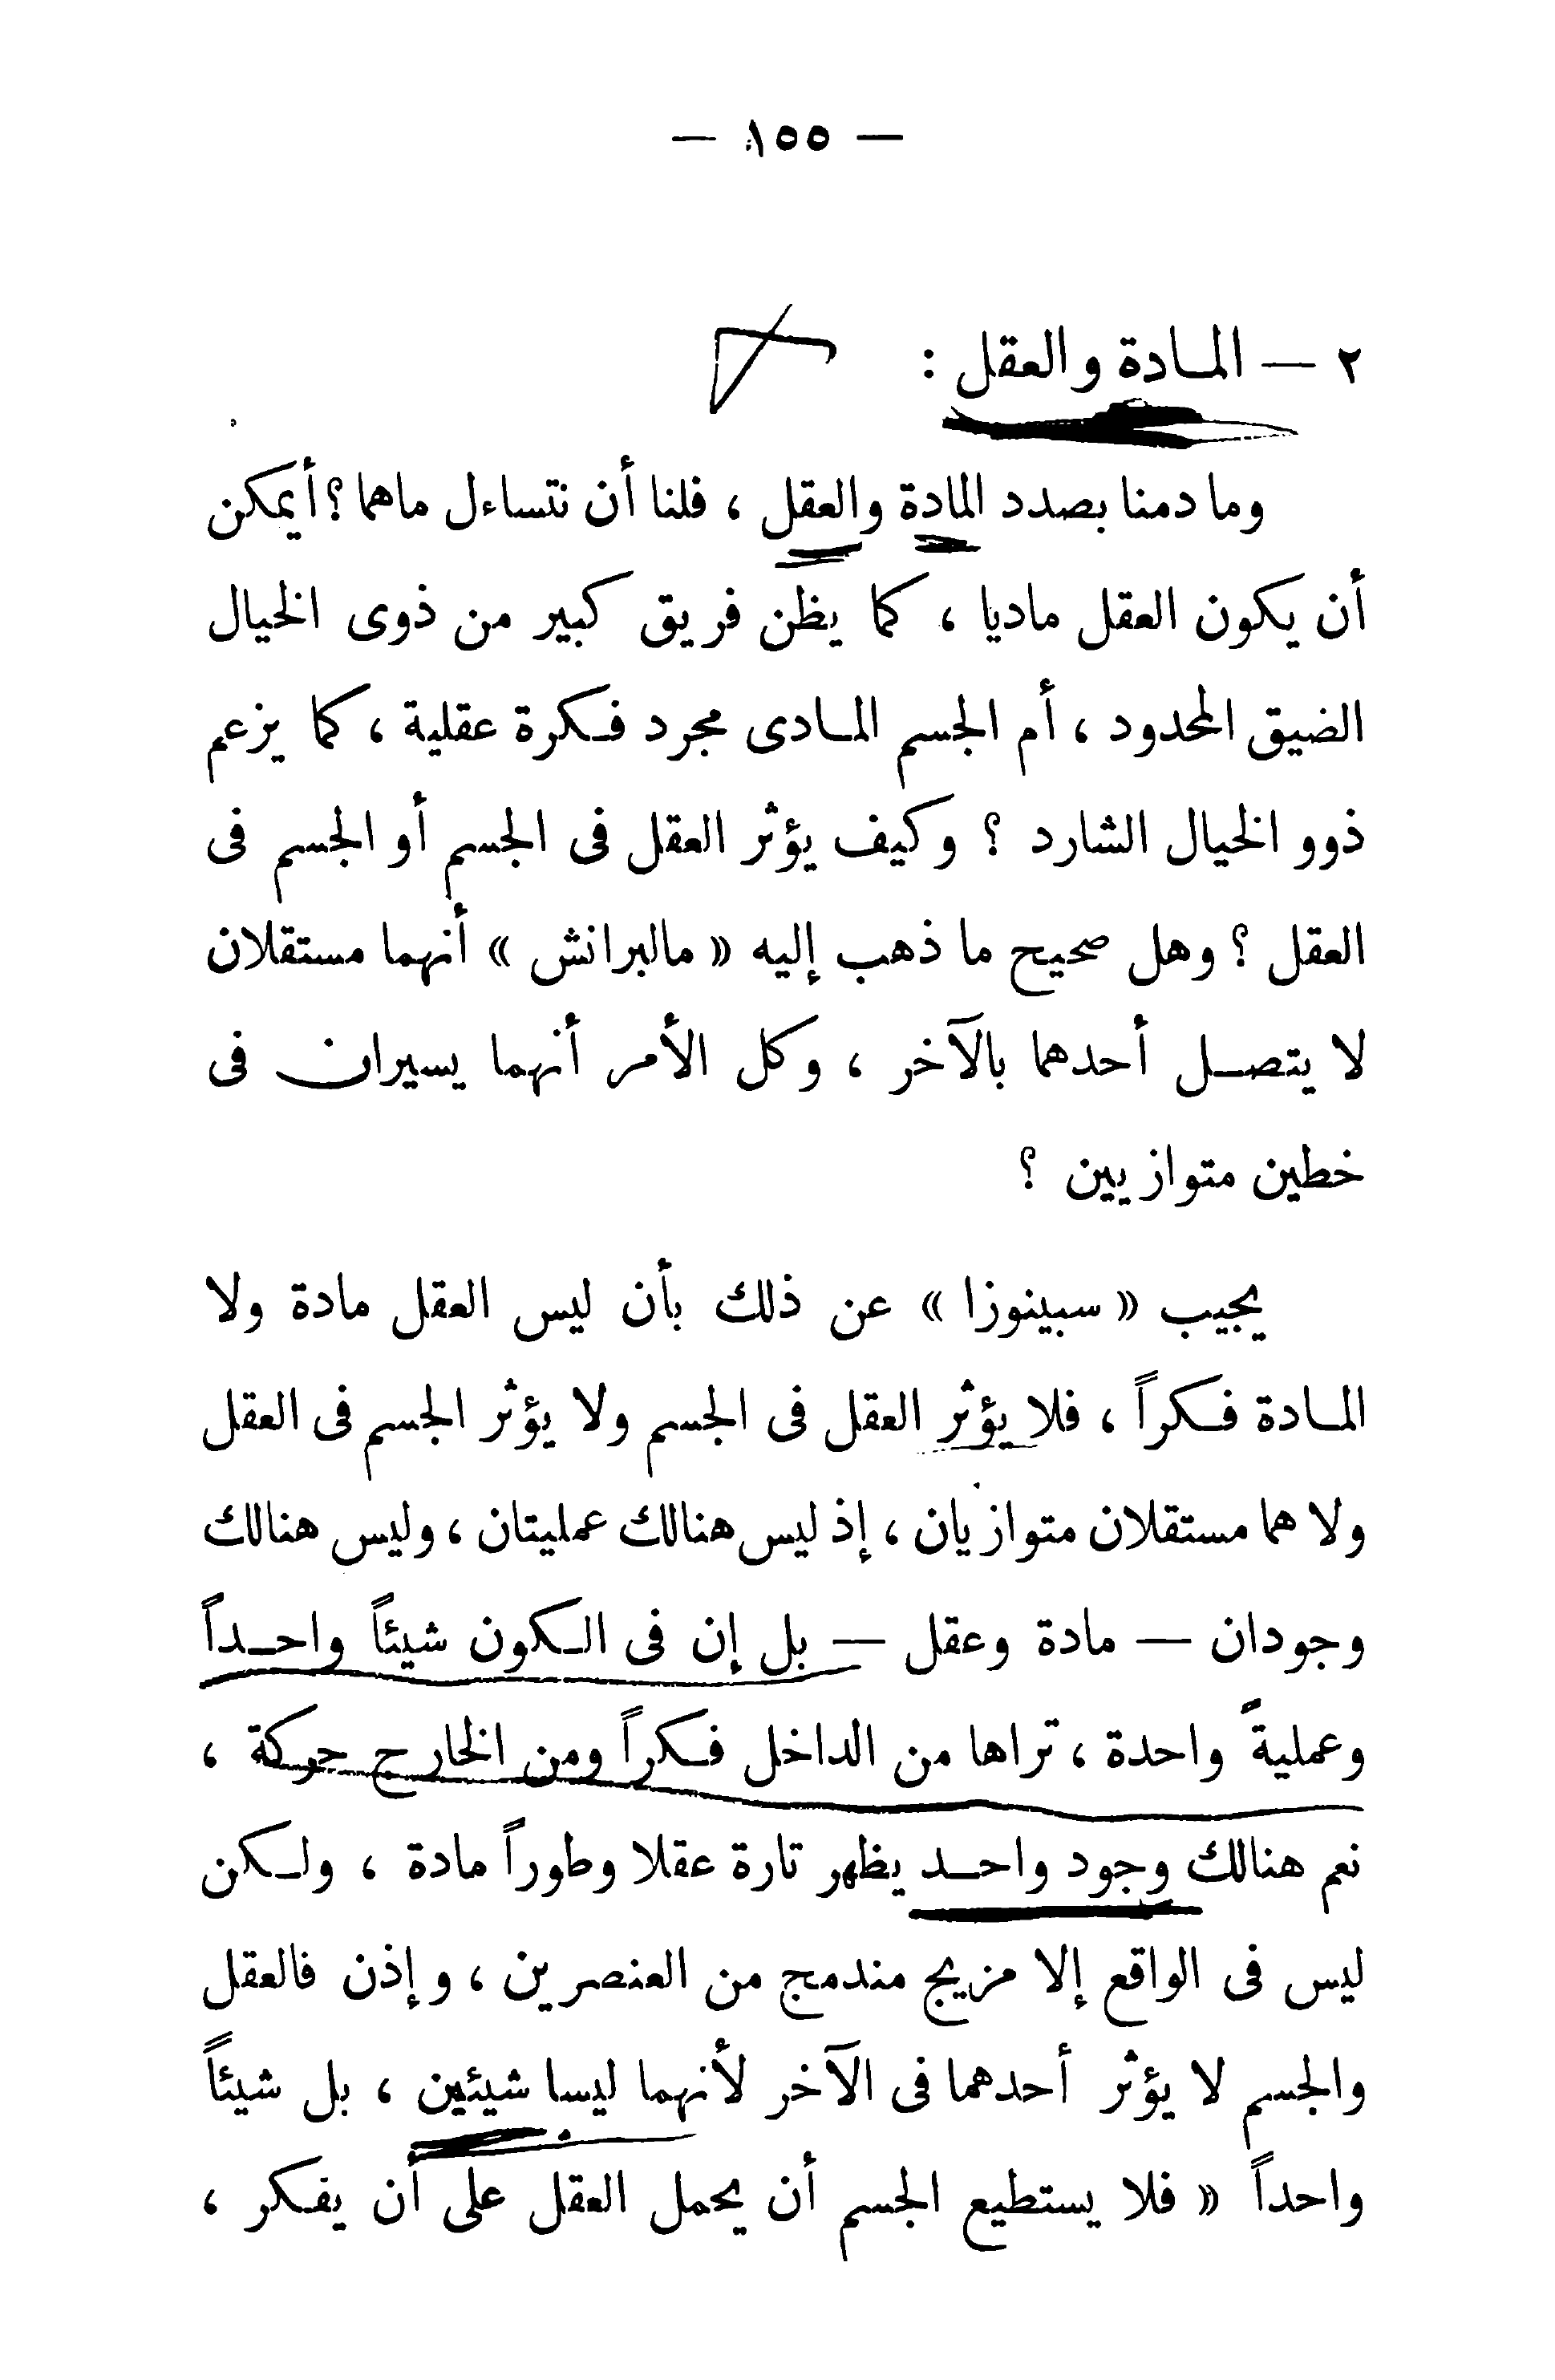 — ١٥٥ —
٢ — المادة والعقل :
وما دمنا بصدد المادة والعقل ، فلنا أن نتساءل ماهما ؟ أيمكن
أن يكون العقل ماديا ، كما يظن فريق كبير من ذوى الخيال
الضيق المحدود ، أم الجسم المادى مجرد فكرة عقلية ، كما يزعم
ذوو الخيال الشارد ؟ وكيف يؤثر العقل فى الجسم أو الجسم فى
العقل ؟ وهل صحيح ما ذهب إليه « مالبرانش » أنهما مستقلان
لا يتصل أحدهما بالآخر ، وكل الأمر أنهما يسيران فى
خطين متوازيين ؟
يجيب « سبينوزا » عن ذلك بأن ليس العقل مادة ولا
المادة فكراً ، فلا يؤثر العقل فى الجسم ولا يؤثر الجسم فى العقل
ولا هما مستقلان متوازيان ، إذ ليس هنالك عمليتان ، وليس هنالك
وجودان — مادة وعقل — بل إن فى الكون شيئاً واحداً
وعمليةً واحدة ، تراها من الداخل فكراً ومن الخارج حركة ،
نعم هنالك وجود واحد يظهر تارة عقلا وطوراً مادة ، ولكن
ليس فى الواقع إلا مزيج مندمج من العنصرين ، وإذن فالعقل
والجسم لا يؤثر أحدهما فى الآخر لأنهما ليسا شيئين ، بل شيئاً
واحداً « فلا يستطيع الجسم أن يحمل العقل على أن يفكر ،